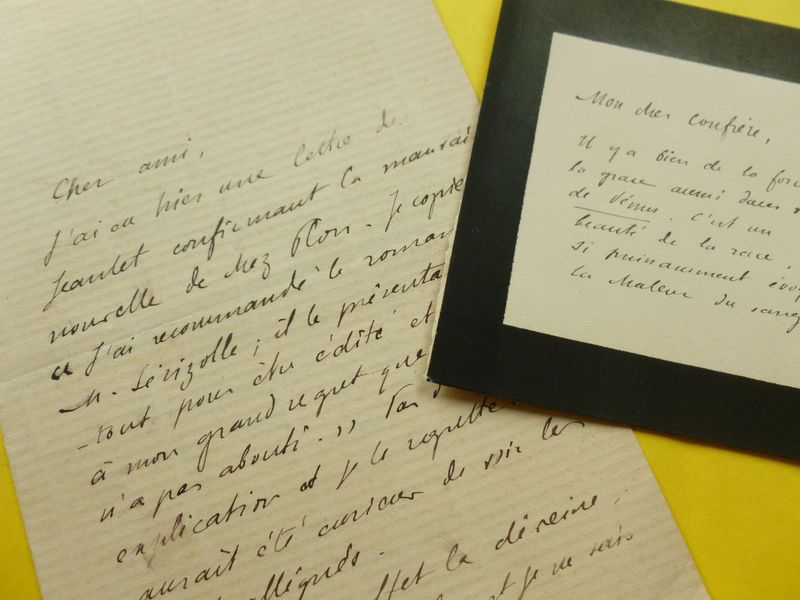 Cher ami,
J'ai eu hier une lettre de
Jeanlet confirmant la mauvai
nouvelle de chez Plon. Je copie
« J'ai recommandé le roman
M. Lérizolle; il le présenta
-tout pour être édité et
à mon grand regret que
n'a pas abouti. »
explication et je le regrette
aurait été curieux de voir les
allégués.
effet la déveine,
et je ne sais
Mon cher confrère,
Il y a bien de la forc
la grâce aussi dans
de Vénus. C'est un
beauté de la race,
si puissamment évoq
la chaleur du sang